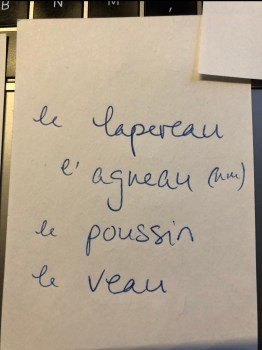 B N M ,
le lapereau
l'agneau (nm)
le poussin
le veau